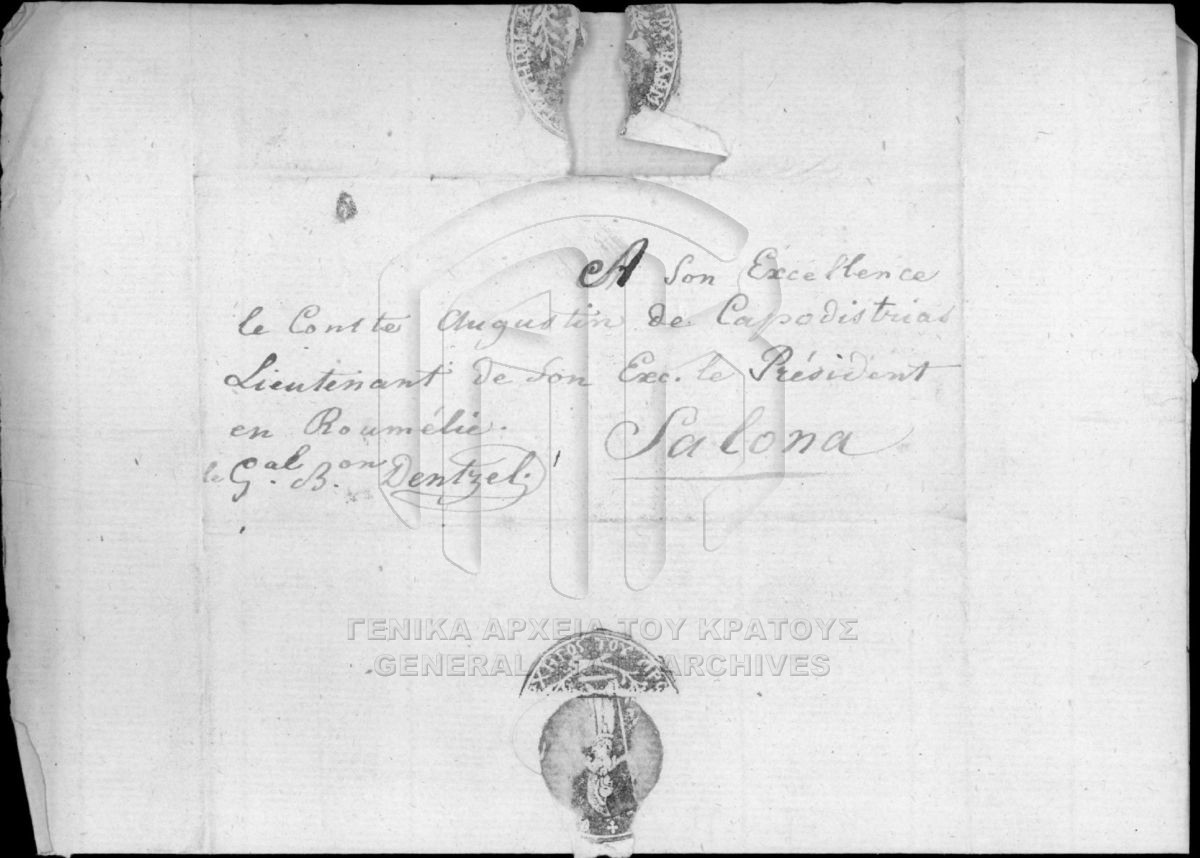 A Son Excellence
le Comte Augustin de Capodistrias
Lieutenant de Son Exc. le Président
en Roumélie.
Salona
le G.al B.on Dentzel.
ΓΕΝΙΚΑ ΑΡΧΕΙΑ ΤΟΥ ΚΡΑΤΟΥΣ
GENERAL ARCHIVES
ΤΟΥ